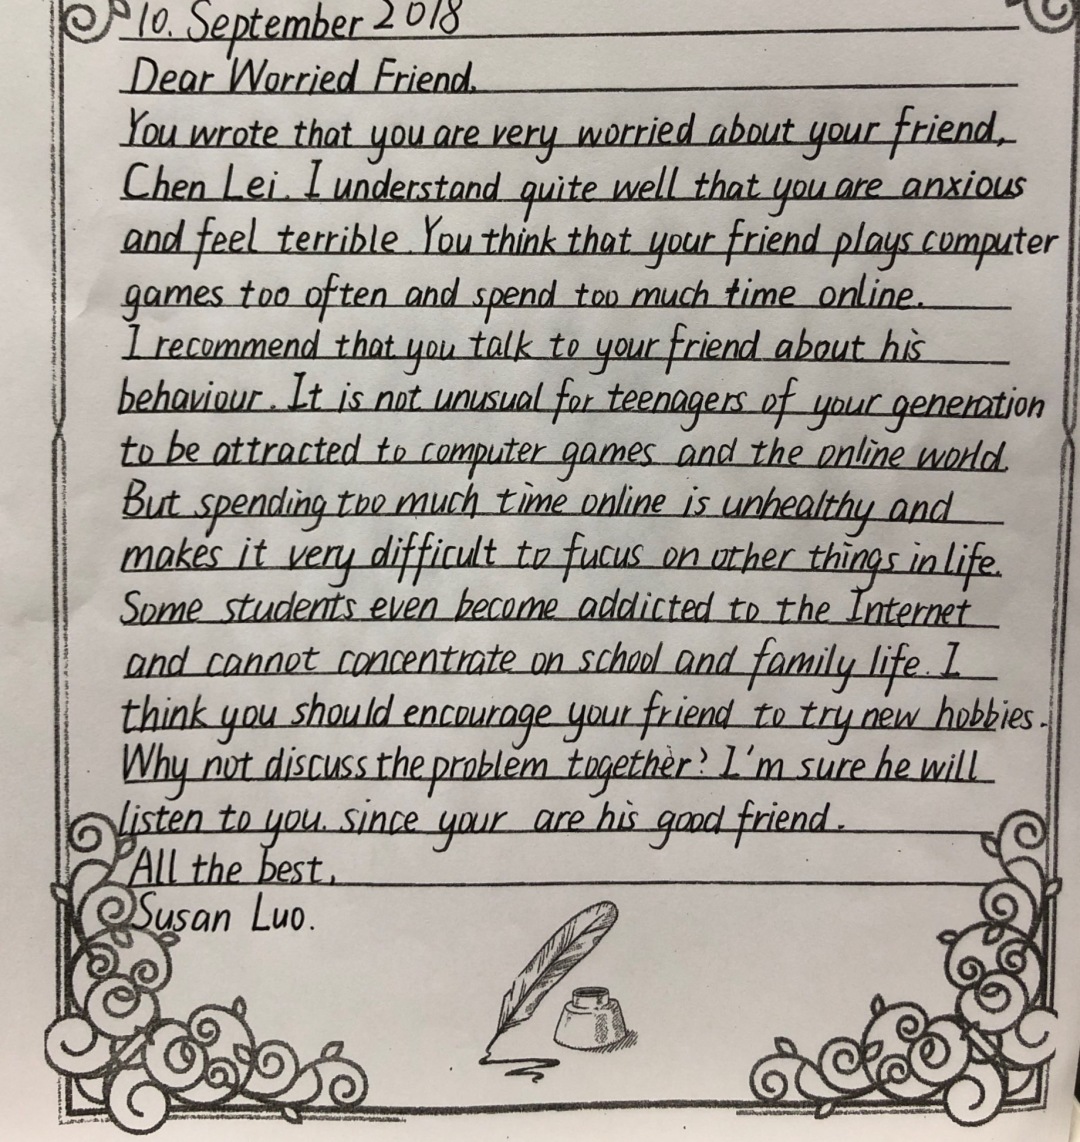 10. September 2018
Dear Worried Friend.
You wrote that you are very worried about your friend,
Chen Lei. I understand quite well that you are anxious
and feel terrible. You think that your friend plays computer
games too often and spend too much time online.
I recommend that you talk to your friend about his
behaviour. It is not unusual for teenagers of your generation
to be attracted to computer games and the online world.
But spending too much time online is unhealthy and
makes it very difficult to fucus on other things in life.
Some students even become addicted to the Internet
and cannot concentrate on school and family life. I
think you should encourage your friend to try new hobbies.
Why not discuss the problem together? I'm sure he will
listen to you. since your are his good friend.
All the best,
Susan Luo.